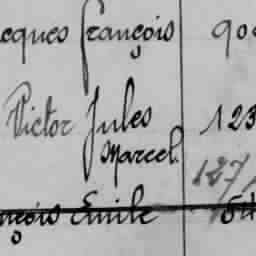 cques François 90
Victor Jules 123
Marcel
127
nçois Emile 64